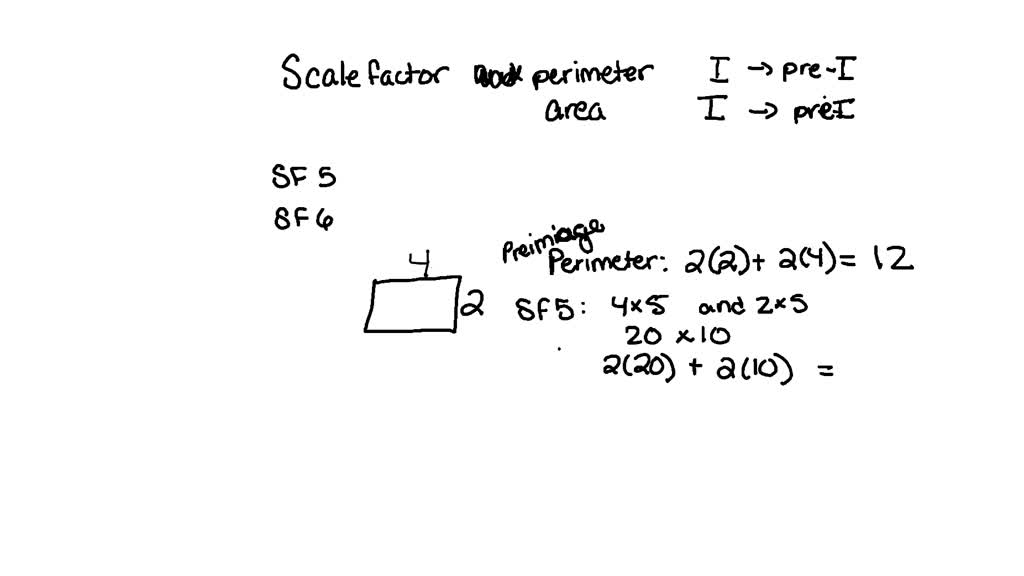 Scale factor perimeter I → pre-I
area I → pre-I
SF 5
SF 6
Preimage
Perimeter: 2(2)+ 2(4)= 12
4
2
SF5: 4×5 and 2×5
20 ×10
2(20) + 2(10) =